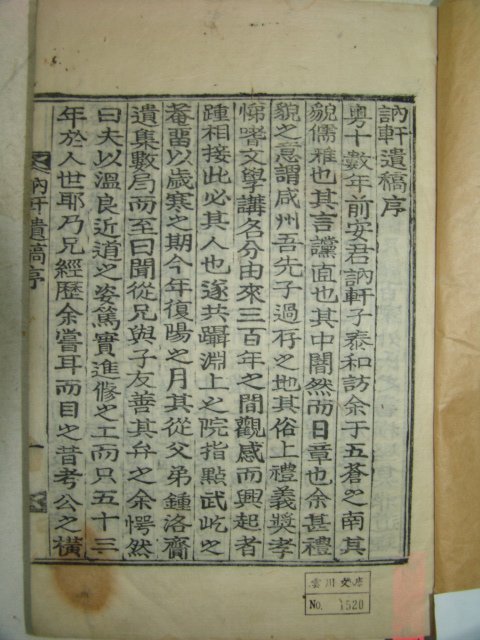 訥軒遺稿序
粤十數年前安君訥軒子泰和訪余于五蒼之南其
貌儒雅也其言讜直也其中闇然而日章也余甚禮
貌之意謂咸州吾先子過存之地其俗上禮義奬孝
悌嗜文學講名分由來三百年之間觀感而興起者
踵相接此必其人也遂共躡淵上之院指點武屹之
菴留以歲寒之期今年復陽之月其從父弟鍾洛齎
遺集數局而至曰聞從兄與子友善其弁之余愕然
曰夫以溫良近道之姿篤實進修之工而只五十三
年於人世耶乃兄經歷余嘗耳而目之昔考公之橫
訥軒遺稿序
一
雲川文庫
No. 1520